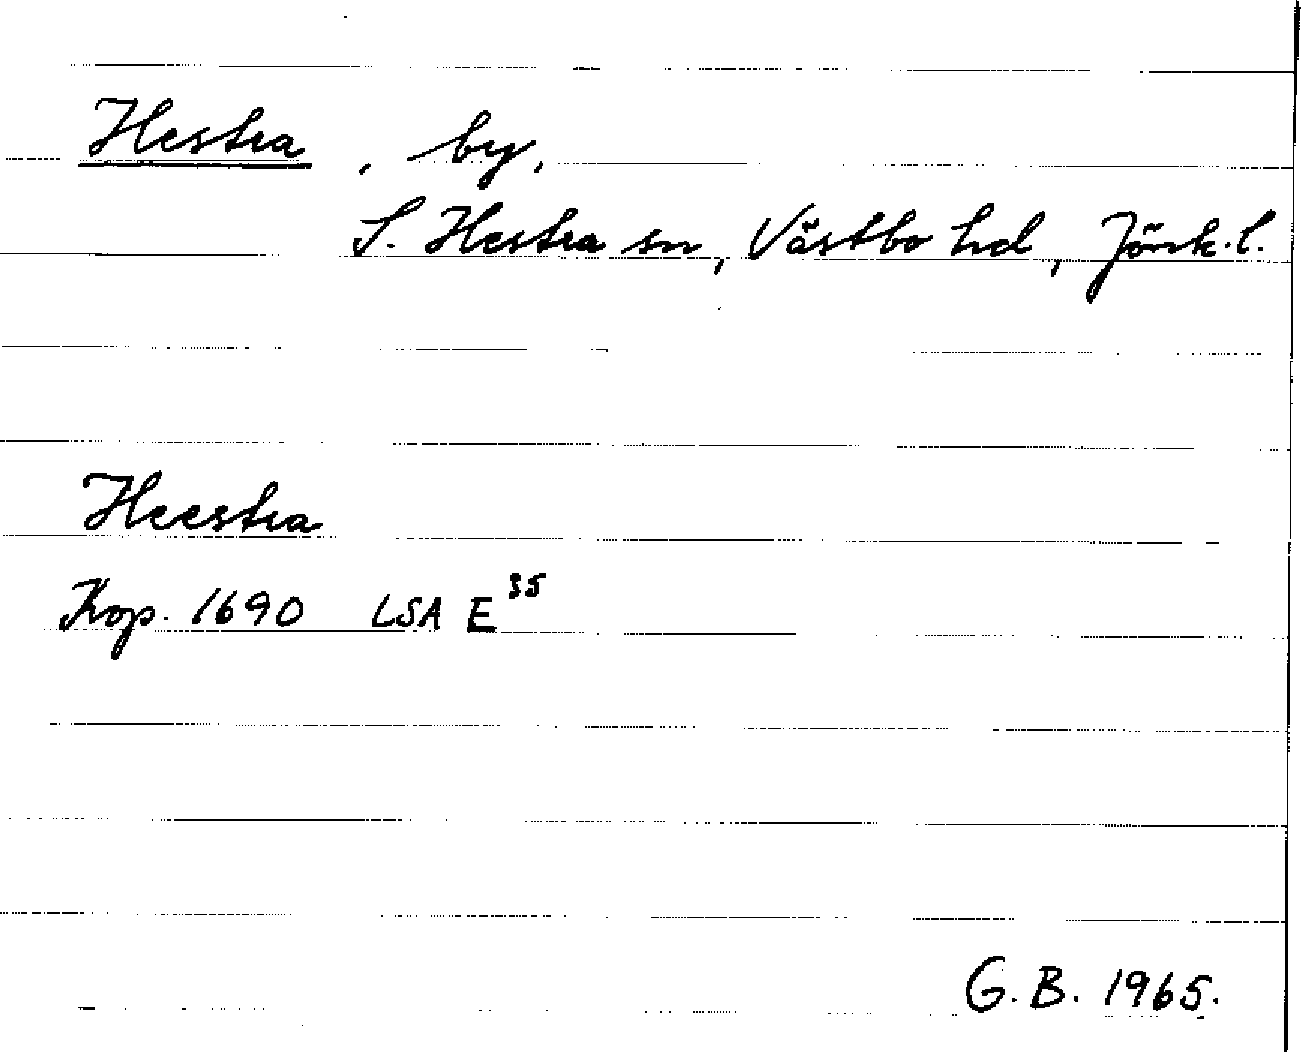 Hestra, by,
S. Hestra sn, Västbo hd, Jönk. l.
Heestra
Kop. 1690 LSA E 35
G. B. 1965.